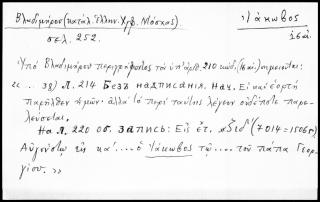 Βλαδιμήρου (κατάλ. Ἑλλην. Χρφ. Μόσχας).
Ἰάκωβος
σελ. 252.
ιϛ́ αἰ.
Ὑπὸ Βλαδιμήρου περιγράφοντος τὰ ὑπ' ἀριθ. 210 κώδ. (16 αἰ.) σημειοῦται:
« ... 38) Л. 214 Безъ надписанія. Нач. Εἰ καὶ ἑορτὴ
παρῆλθεν ἡμῶν· ἀλλὰ τὸ περὶ ταύτης λέγειν οὐδέποτε παρε-
λεύσεται.
На Л. 220 об. запись: Εἰς ἔτ. ͵ζιδ' (7014=1506)
Αὐγούστῳ εἰς κα'.... ὁ Ἰάκωβος τῷ.... τοῦ πάπα Γεωρ-
γίου. »